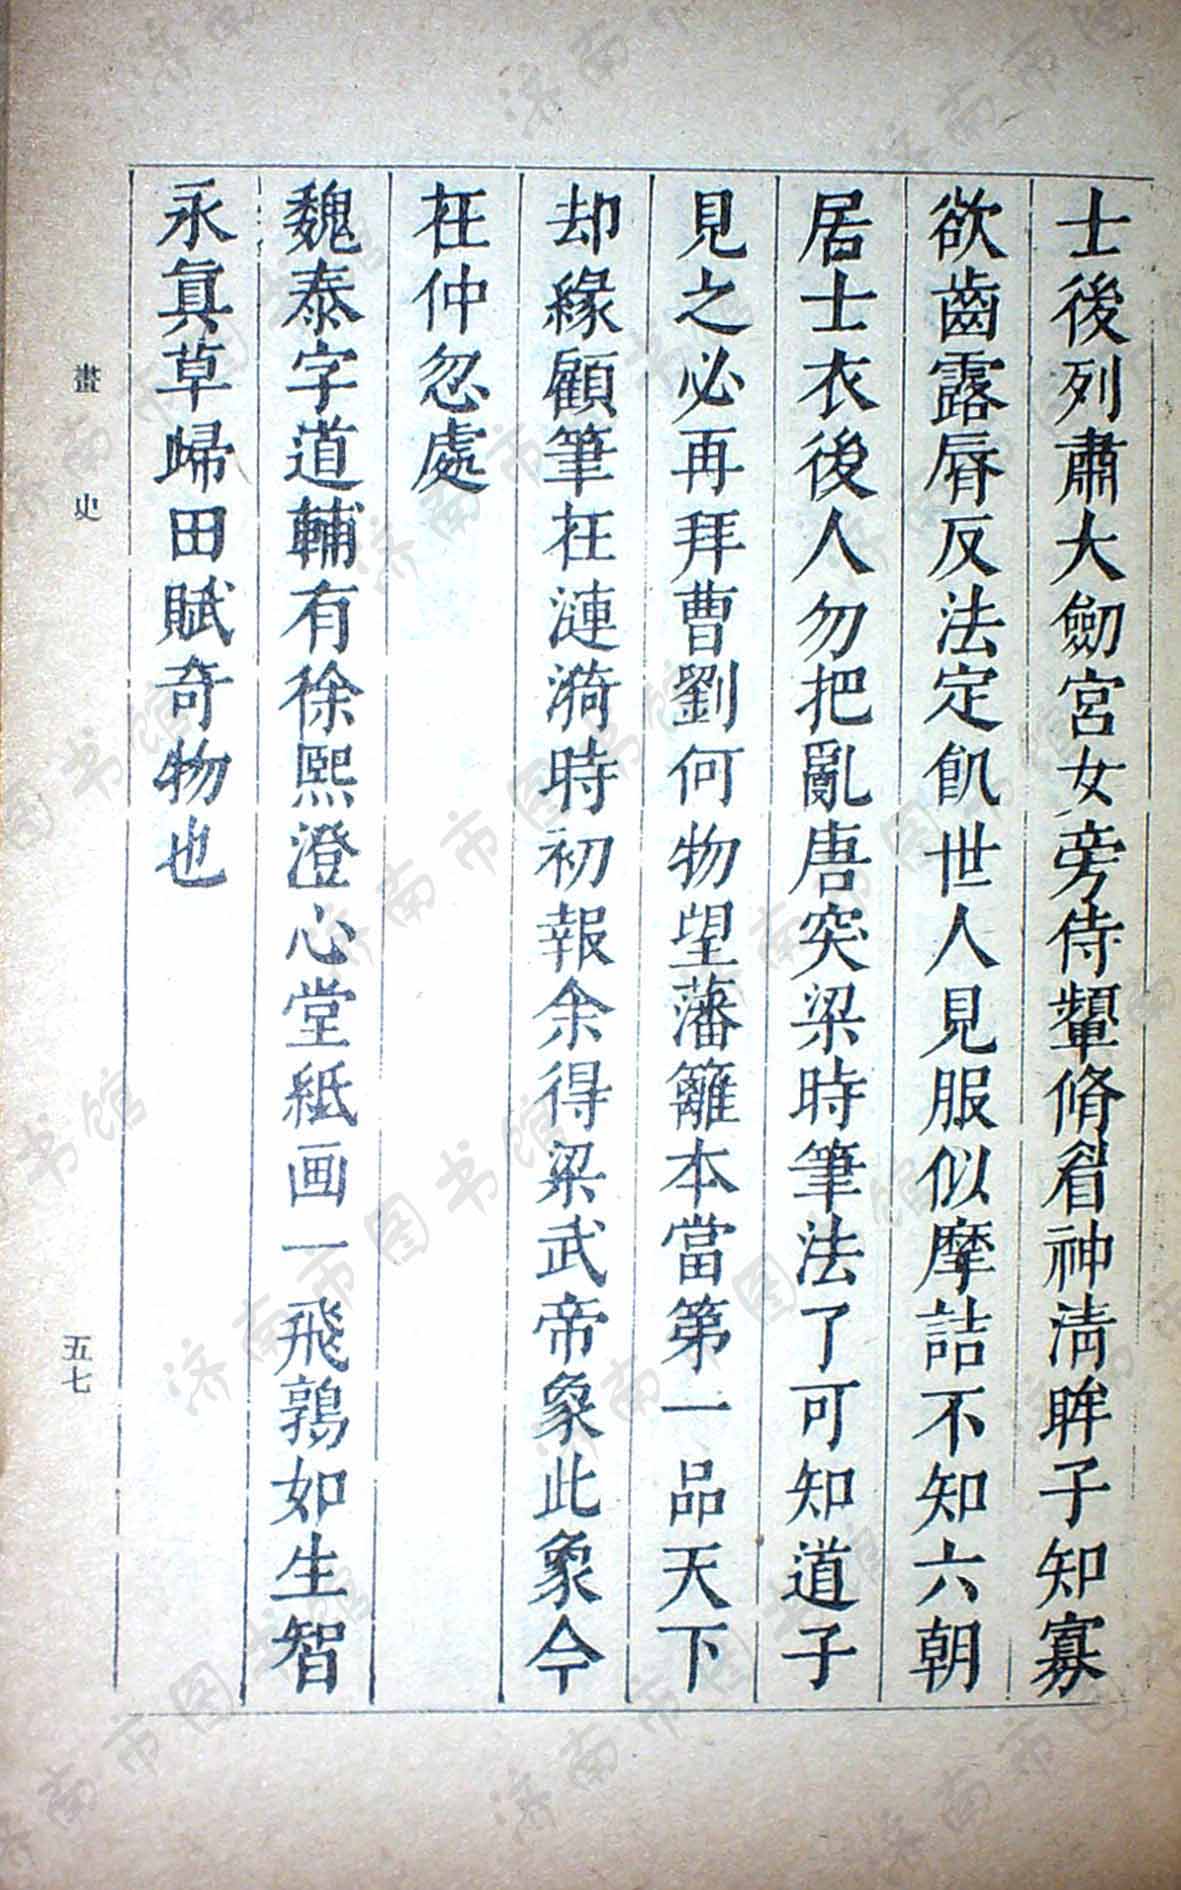 士後列肅大劒宮女旁侍顰脩眉神淸眸子知寡
欲齒露脣反法定飢世人見服似摩詰不知六朝
居士衣後人勿把亂唐突梁時筆法了可知道子
見之必再拜曹劉何物望藩籬本當第一品天下
却緣顧筆在漣漪時初報余得梁武帝象此象今
在仲忽處
魏泰字道輔有徐熙澄心堂紙画一飛鶉如生智
永眞草歸田賦奇物也
畫史
五七
济南市图书馆